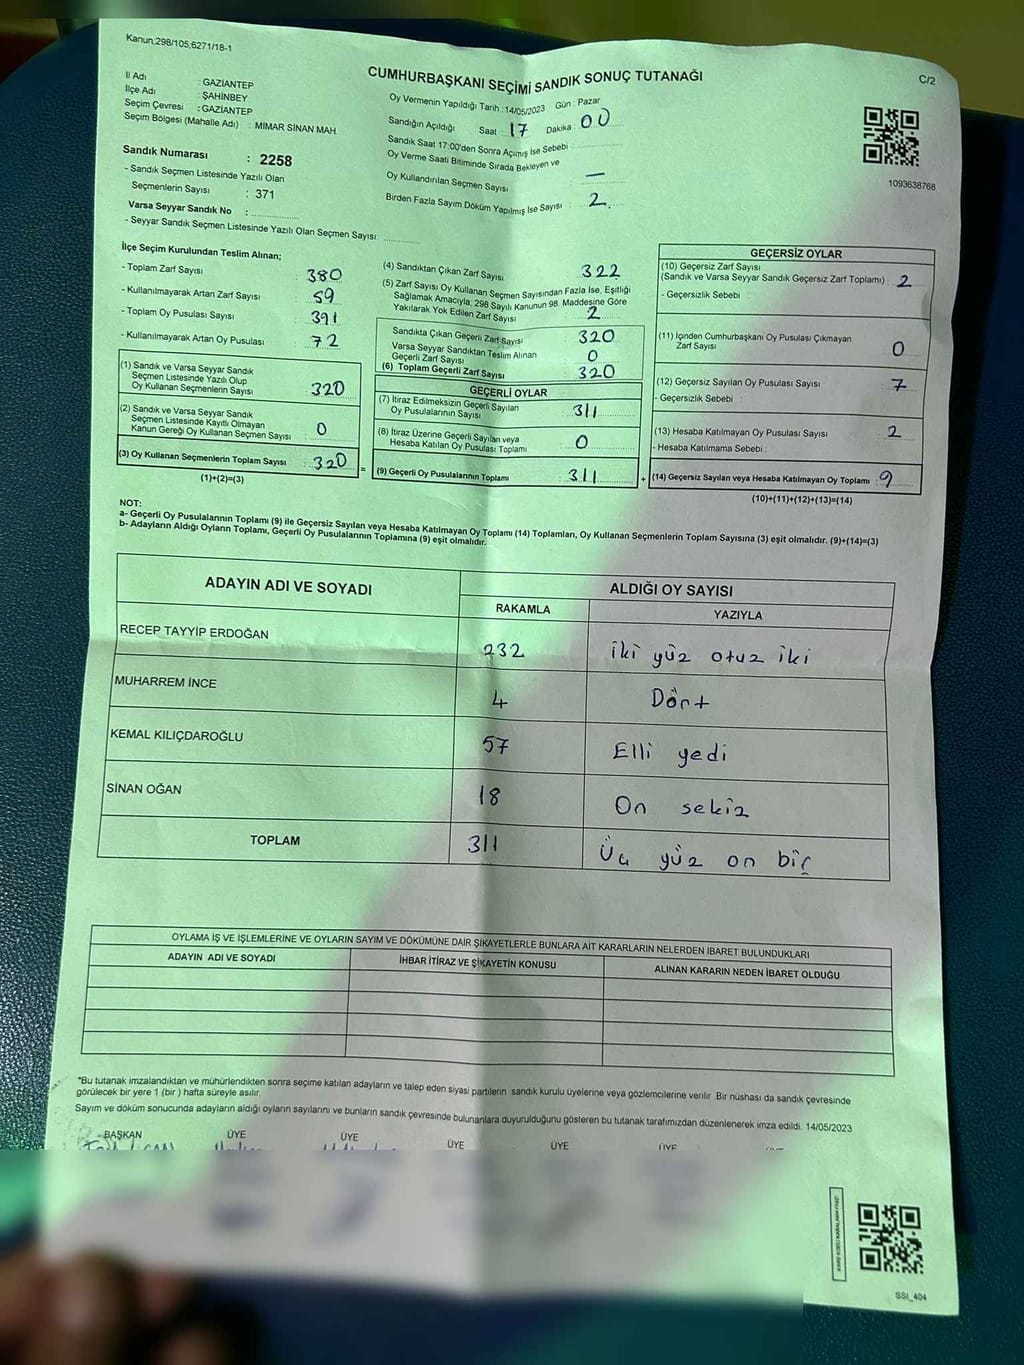 Kanun,298/105,6271/18-1
CUMHURBAŞKANI SEÇİMİ SANDIK SONUÇ TUTANAĞI
C/2
İl Adı : GAZİANTEP
İlçe Adı : ŞAHİNBEY
Seçim Çevresi : GAZİANTEP
Seçim Bölgesi (Mahalle Adı) : MİMAR SİNAN MAH.
Sandık Numarası : 2258
- Sandık Seçmen Listesinde Yazılı Olan
Seçmenlerin Sayısı : 371
Varsa Seyyar Sandık No :
- Seyyar Sandık Seçmen Listesinde Yazılı Olan Seçmen Sayısı:
Oy Vermenin Yapıldığı Tarih : 14/05/2023 Gün : Pazar
Sandığın Açıldığı Saat : 17 Dakika : 00
Sandık Saat 17:00'den Sonra Açımış İse Sebebi :
Oy Verme Saati Bitiminde Sırada Bekleyen ve
Oy Kullandırılan Seçmen Sayısı : —
Birden Fazla Sayım Döküm Yapılmış İse Sayısı : 2.
1093638768
İlçe Seçim Kurulundan Teslim Alınan;
- Toplam Zarf Sayısı : 380
- Kullanılmayarak Artan Zarf Sayısı : 59
- Toplam Oy Pusulası Sayısı : 391
- Kullanılmayarak Artan Oy Pusulası : 72
(1) Sandık ve Varsa Seyyar Sandık
Seçmen Listesinde Yazılı Olup
Oy Kullanan Seçmenlerin Sayısı : 320
(2) Sandık ve Varsa Seyyar Sandık
Seçmen Listesinde Kayıtlı Olmayan
Kanun Gereği Oy Kullanan Seçmen Sayısı : 0
(3) Oy Kullanan Seçmenlerin Toplam Sayısı : 320
(1)+(2)=(3)
(4) Sandıktan Çıkan Zarf Sayısı : 322
(5) Zarf Sayısı Oy Kullanan Seçmen Sayısından Fazla İse, Eşitliği
Sağlamak Amacıyla; 298 Sayılı Kanunun 98. Maddesine Göre
Yakılarak Yok Edilen Zarf Sayısı : 2
Sandıkta Çıkan Geçerli Zarf Sayısı : 320
Varsa Seyyar Sandıktan Teslim Alınan
Geçerli Zarf Sayısı : 0
(6) Toplam Geçerli Zarf Sayısı : 320
GEÇERLİ OYLAR
(7) İtiraz Edilmeksizin Geçerli Sayılan
Oy Pusulalarının Sayısı : 311
(8) İtiraz Üzerine Geçerli Sayılan veya
Hesaba Katılan Oy Pusulası Toplamı : 0
= (9) Geçerli Oy Pusulalarının Toplamı : 311
GEÇERSİZ OYLAR
(10) Geçersiz Zarf Sayısı
(Sandık ve Varsa Seyyar Sandık Geçersiz Zarf Toplamı) : 2
- Geçersizlik Sebebi :
(11) İçinden Cumhurbaşkanı Oy Pusulası Çıkmayan
Zarf Sayısı : 0
(12) Geçersiz Sayılan Oy Pusulası Sayısı : 7
- Geçersizlik Sebebi :
(13) Hesaba Katılmayan Oy Pusulası Sayısı : 2
- Hesaba Katılmama Sebebi :
+ (14) Geçersiz Sayılan veya Hesaba Katılmayan Oy Toplamı : 9
(10)+(11)+(12)+(13)=(14)
NOT:
a- Geçerli Oy Pusulalarının Toplamı (9) ile Geçersiz Sayılan veya Hesaba Katılmayan Oy Toplamı (14) Toplamları, Oy Kullanan Seçmenlerin Toplam Sayısına (3) eşit olmalıdır. (9)+(14)=(3)
b- Adayların Aldığı Oyların Toplamı, Geçerli Oy Pusulalarının Toplamına (9) eşit olmalıdır.
ADAYIN ADI VE SOYADI ALDIĞI OY SAYISI
RAKAMLA YAZIYLA
RECEP TAYYİP ERDOĞAN 232 iki yüz otuz iki
MUHARREM İNCE 4 Dört
KEMAL KILIÇDAROĞLU 57 Elli yedi
SİNAN OĞAN 18 On sekiz
TOPLAM 311 Üç yüz on bir
OYLAMA İŞ VE İŞLEMLERİNE VE OYLARIN SAYIM VE DÖKÜMÜNE DAİR ŞİKAYETLERLE BUNLARA AİT KARARLARIN NELERDEN İBARET BULUNDUKLARI
ADAYIN ADI VE SOYADI İHBAR İTİRAZ VE ŞİKAYETİN KONUSU ALINAN KARARIN NEDEN İBARET OLDUĞU
"Bu tutanak imzalandıktan ve mühürlendikten sonra seçime katılan adayların ve talep eden siyasi partilerin sandık kurulu üyelerine veya gözlemcilerine verilir. Bir nüshası da sandık çevresinde
görülecek bir yere 1 (bir) hafta süreyle asılır.
Sayım ve döküm sonucunda adayların aldığı oyların sayılarını ve bunların sandık çevresinde bulunanlara duyurulduğunu gösteren bu tutanak tarafımızdan düzenlenerek imza edildi. 14/05/2023
BAŞKAN ÜYE ÜYE ÜYE ÜYE ÜYE
SSI_404